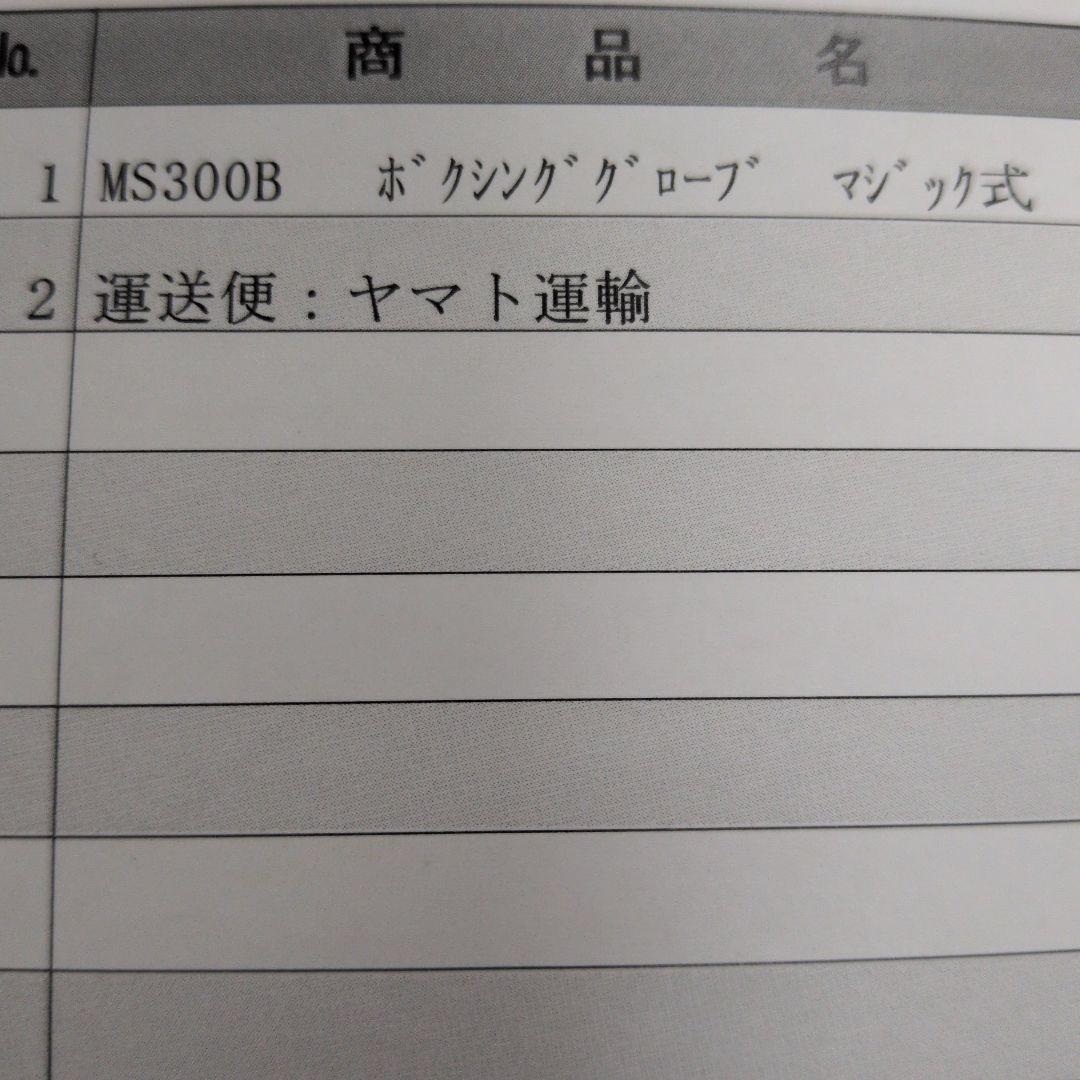 No. 商品名
1 MS300B ﾎﾞｸｼﾝｸﾞｸﾞﾛｰﾌﾞ ﾏｼﾞｯｸ式
2 運送便：ヤマト運輸